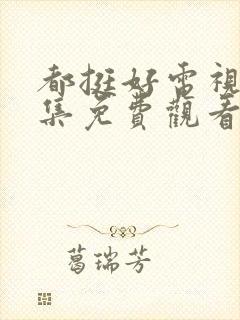 都挺好電視
集免費觀看
葛瑞芳